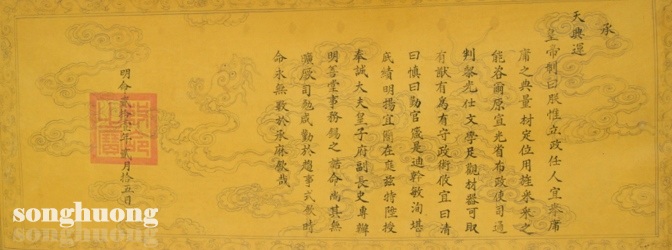 承
天興運
皇帝制曰朕惟立政任人宜
庸之典量材定位用旌采采之
能咨爾原宣光省布政使司通
判黎光仕文學足觀材器可取
有猷有為有守政術攸宜曰清
曰慎曰勤官箴是迪幹敏洵堪
底績明揚宜爾在庭茲特陞授
奉誠大夫皇子府副長史專辦
明善堂事務錫之誥命尚其無
曠厥司勉或勤於趨事式欽時
命永無斁於承庥欽哉
明命貳拾年貳月拾五日
songhuong
songhuong